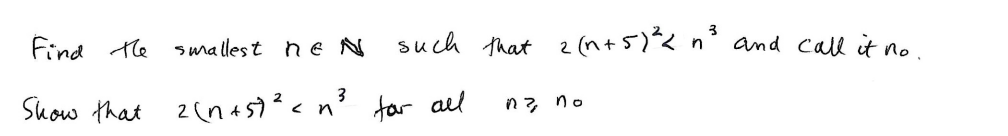 Find the smallest n ∈ ℕ such that 2(n+5)²< n³ and call it n₀.
Show that 2(n+5)² < n³ for all n ≥ n₀